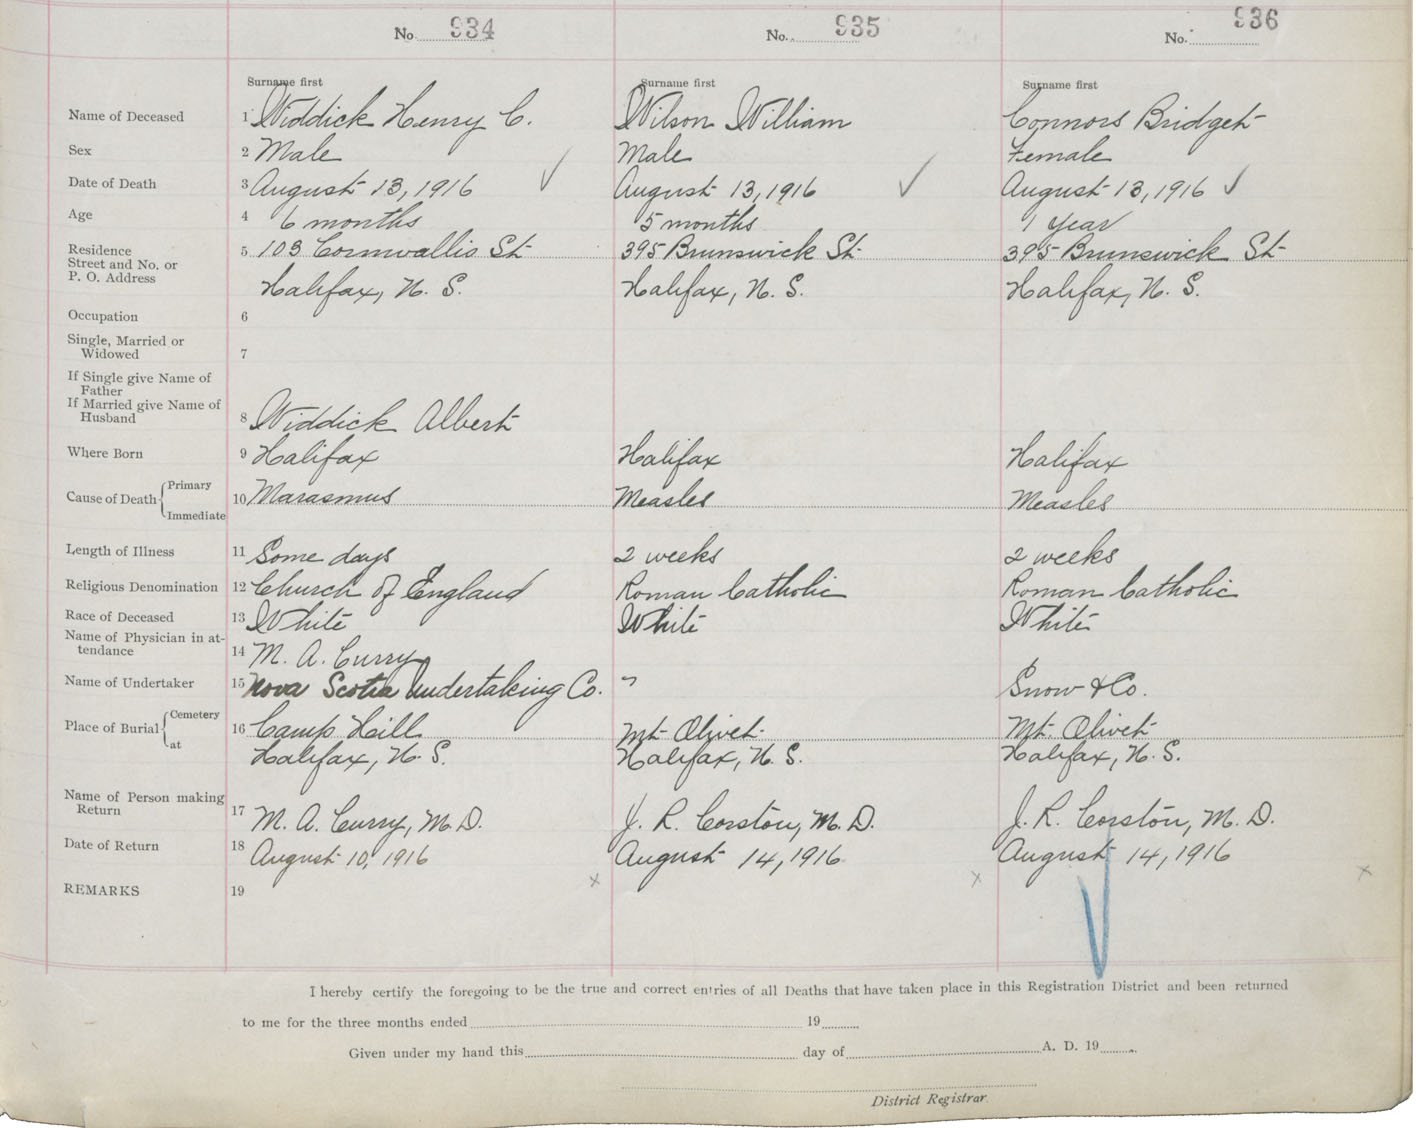 No. 934 No. 935 No. 936
Surname first Surname first Surname first
Name of Deceased 1 Widdick Henry C. Wilson William Connors Bridget
Sex 2 Male Male Female
Date of Death 3 August 13, 1916 August 13, 1916 August 13, 1916
Age 4 6 months 5 months 1 Year
Residence 5 103 Cornwallis St 395 Brunswick St 395 Brunswick St
Street and No. or
P. O. Address Halifax, N. S. Halifax, N. S. Halifax, N. S.
Occupation 6
Single, Married or
Widowed 7
If Single give Name of
Father
If Married give Name of
Husband 8 Widdick Albert
Where Born 9 Halifax Halifax Halifax
Cause of Death Primary 10 Marasmus Measles Measles
Immediate
Length of Illness 11 Some days 2 weeks 2 weeks
Religious Denomination 12 Church of England Roman Catholic Roman Catholic
Race of Deceased 13 White White White
Name of Physician in at-
tendance 14 M. A. Curry
Name of Undertaker 15 Nova Scotia Undertaking Co. " Snow & Co.
Place of Burial Cemetery 16 Camp Hill Mt Olivet Mt. Olivet
at Halifax, N. S. Halifax, N. S. Halifax, N. S.
Name of Person making
Return 17 M. A. Curry, M. D. J. R. Corston, M. D. J. R. Corston, M. D.
Date of Return 18 August 10, 1916 August 14, 1916 August 14, 1916
REMARKS 19
I hereby certify the foregoing to be the true and correct entries of all Deaths that have taken place in this Registration District and been returned
to me for the three months ended 19
Given under my hand this day of A. D. 19
District Registrar.